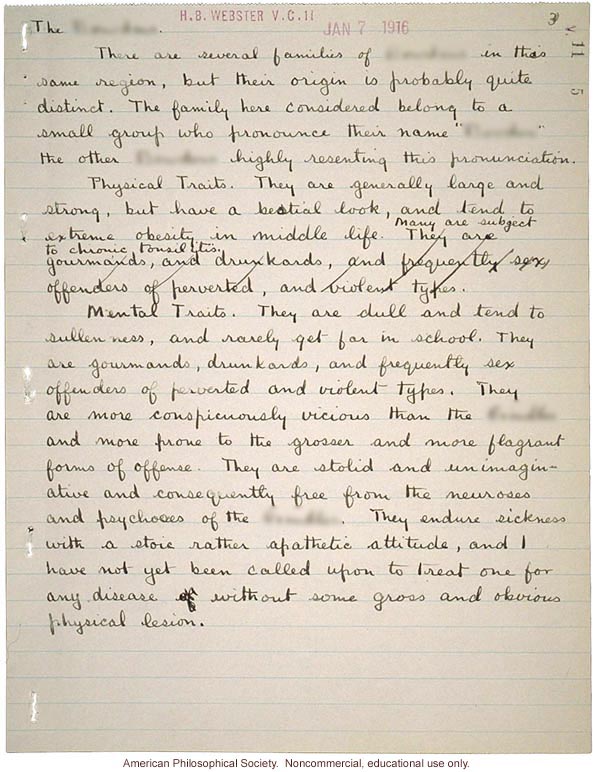 H.B. WEBSTER V.C. 11
JAN 7 1916
3
11 5
The
There are several families of in this
same region, but their origin is probably quite
distinct. The family here considered belong to a
small group who pronounce their name " "
the other highly resenting this pronunciation.
Physical Traits. They are generally large and
strong, but have a bestial look, and tend to
extreme obesity in middle life. Many are subject
to chronic tonsilitis. They are
gourmands, and drunkards, and frequently sex
offenders of perverted, and violent types.
Mental Traits. They are dull and tend to
sullenness, and rarely get far in school. They
are gourmands, drunkards, and frequently sex
offenders of perverted and violent types. They
are more conspicuously vicious than the
and more prone to the grosser and more flagrant
forms of offense. They are stolid and unimagin-
ative and consequently free from the neuroses
and psychoses of the . They endure sickness
with a stoic rather apathetic attitude, and I
have not yet been called upon to treat one for
any disease without some gross and obvious
physical lesion.
American Philosophical Society. Noncommercial, educational use only.